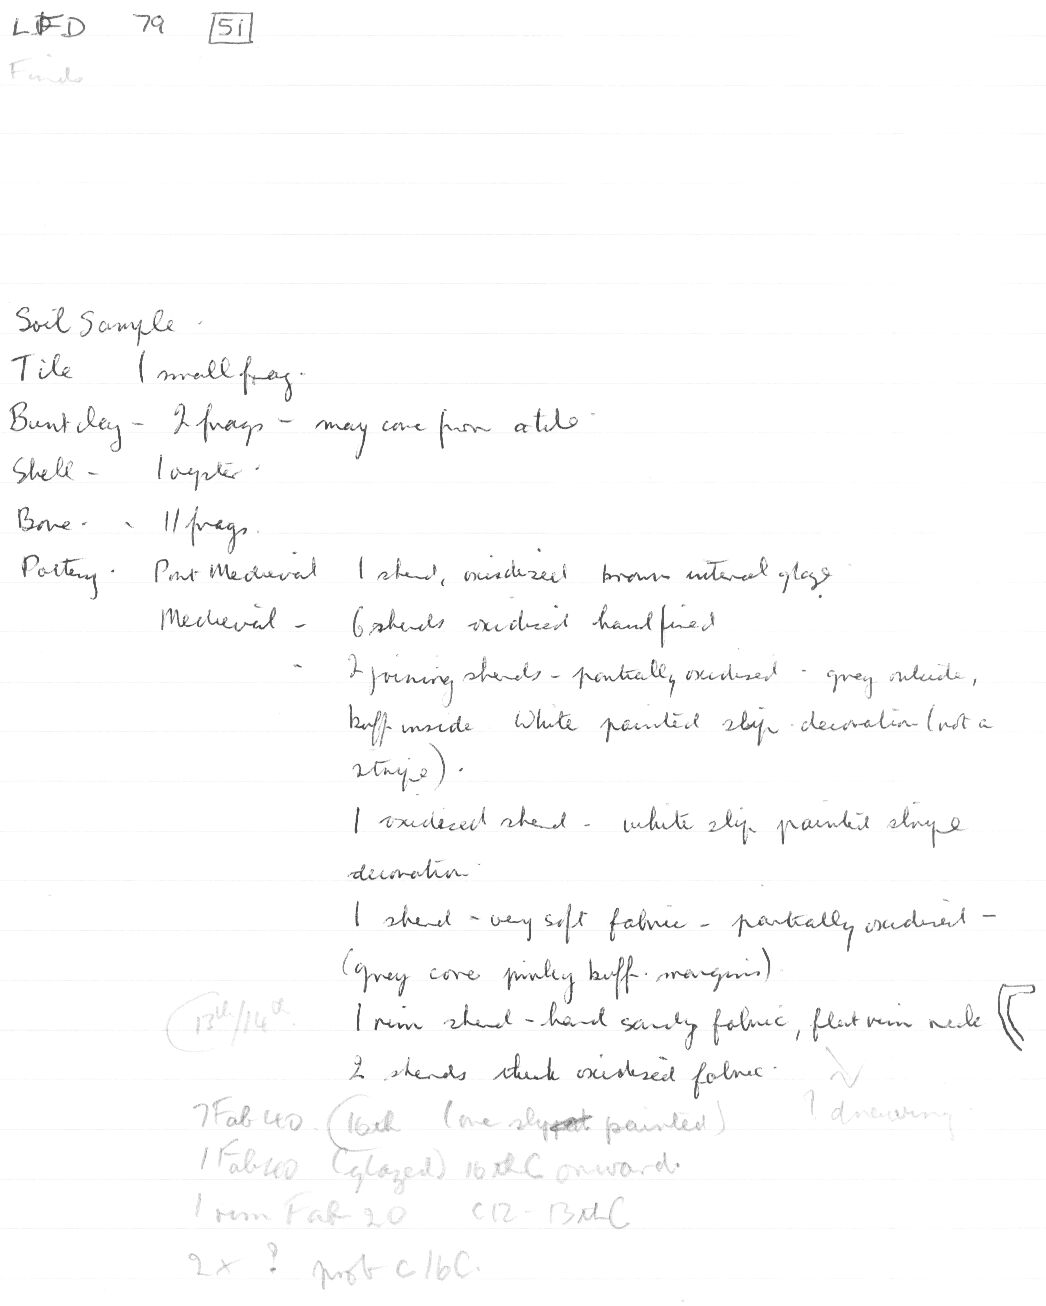 LFD 79 51
Finds
Soil Sample.
Tile 1 small frag.
Burnt clay - 2 frags - may come from a tile.
Shell - 1 oyster.
Bone. - 11 frags.
Pottery. Post Medieval 1 sherd, oxidised brown internal glaze
Medieval - 6 sherds oxidised hard fired
- 2 joining sherds - partially oxidised - grey outside,
buff inside White painted slip decoration (not a
stripe).
1 oxidised sherd - white slip painted stripe
decoration.
1 sherd - very soft fabric - partially oxidised -
(grey core pinky buff margins)
13th/14th 1 rim sherd - hard sandy fabric, flat rim neck
2 sherds thick oxidised fabric.
? drawing.
7 Fab 40 (16th (one slip painted)
1 Fab 40 (glazed) 16thC onwards
1 rim Fab 20 C12 - 13thC
2 x ? prob C16C.